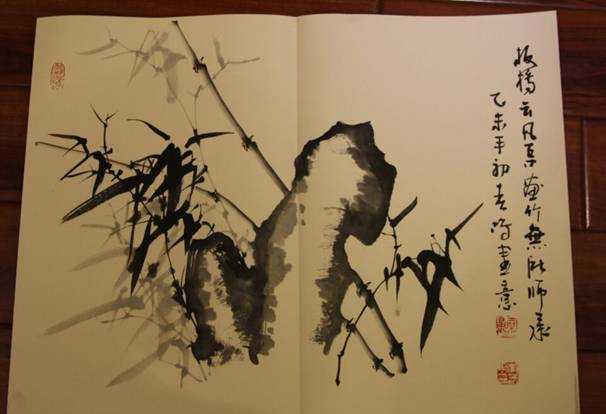 板橋云凡吾畫竹無所師承
乙未年初春畫意